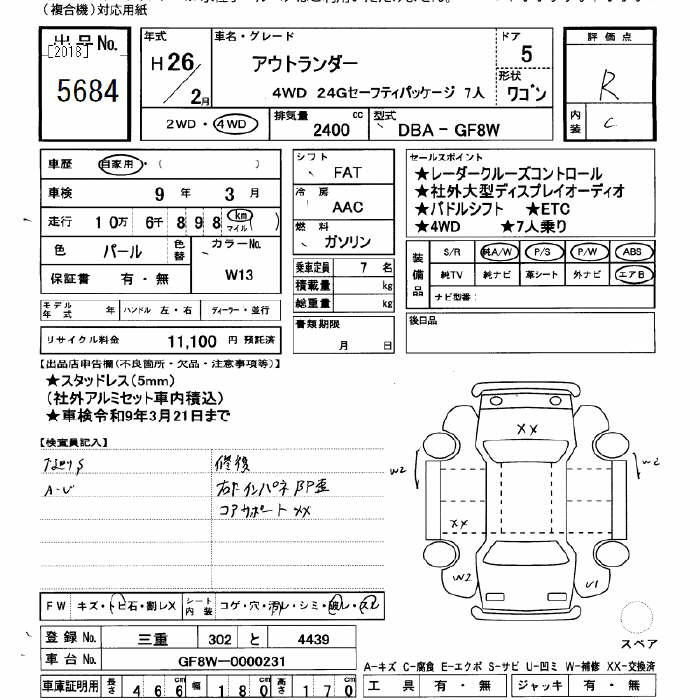 （複合機）対応用紙
出品No.
[2018]
5684
年式
H26/2月
車名・グレード
アウトランダー
4WD 24Gセーフティパッケージ 7人
ドア
5
形状
ワゴン
2WD・4WD
排気量
2400 cc
型式
DBA-GF8W
評価点
R
内装
C
車歴 自家用・（ ）
車検 9年 3月
走行 10万 6千 898 km マイル
色 パール 色替
カラーNo. W13
保証書 有・無
モデル年式 年 ハンドル 左・右 ディーラー・並行
リサイクル料金 11,100 円 預託済
シフト FAT
冷房 AAC
燃料 ガソリン
乗車定員 7 名
積載量 kg
総重量 kg
書類期限
月 日
セールスポイント
★レーダークルーズコントロール
★社外大型ディスプレイオーディオ
★パドルシフト ★ETC
★4WD ★7人乗り
装備品
S/R 純A/W P/S P/W ABS
純TV 純ナビ 革シート 外ナビ エアB
ナビ型番：
後日品
【出品店申告欄（不良箇所・欠品・注意事項等）】
★スタッドレス（5mm）
（社外アルミセット車内積込）
★車検令和9年3月21日まで
【検査員記入】
A・U
修復
コアサポート XX
XX
W2
W2
XX
W2
U1
スペア
FW キズ・トビ石・割レX
シート内装 コゲ・穴・汚レ・シミ・破レ・スレ
登録No. 三重 302 と 4439
車台No. GF8W-0000231
車庫証明用 長さ 466cm 幅 180cm 高さ 170
A-キズ C-腐食 E-エクボ S-サビ U-凹ミ W-補修 XX-交換済
工具 有・無 ジャッキ 有・無